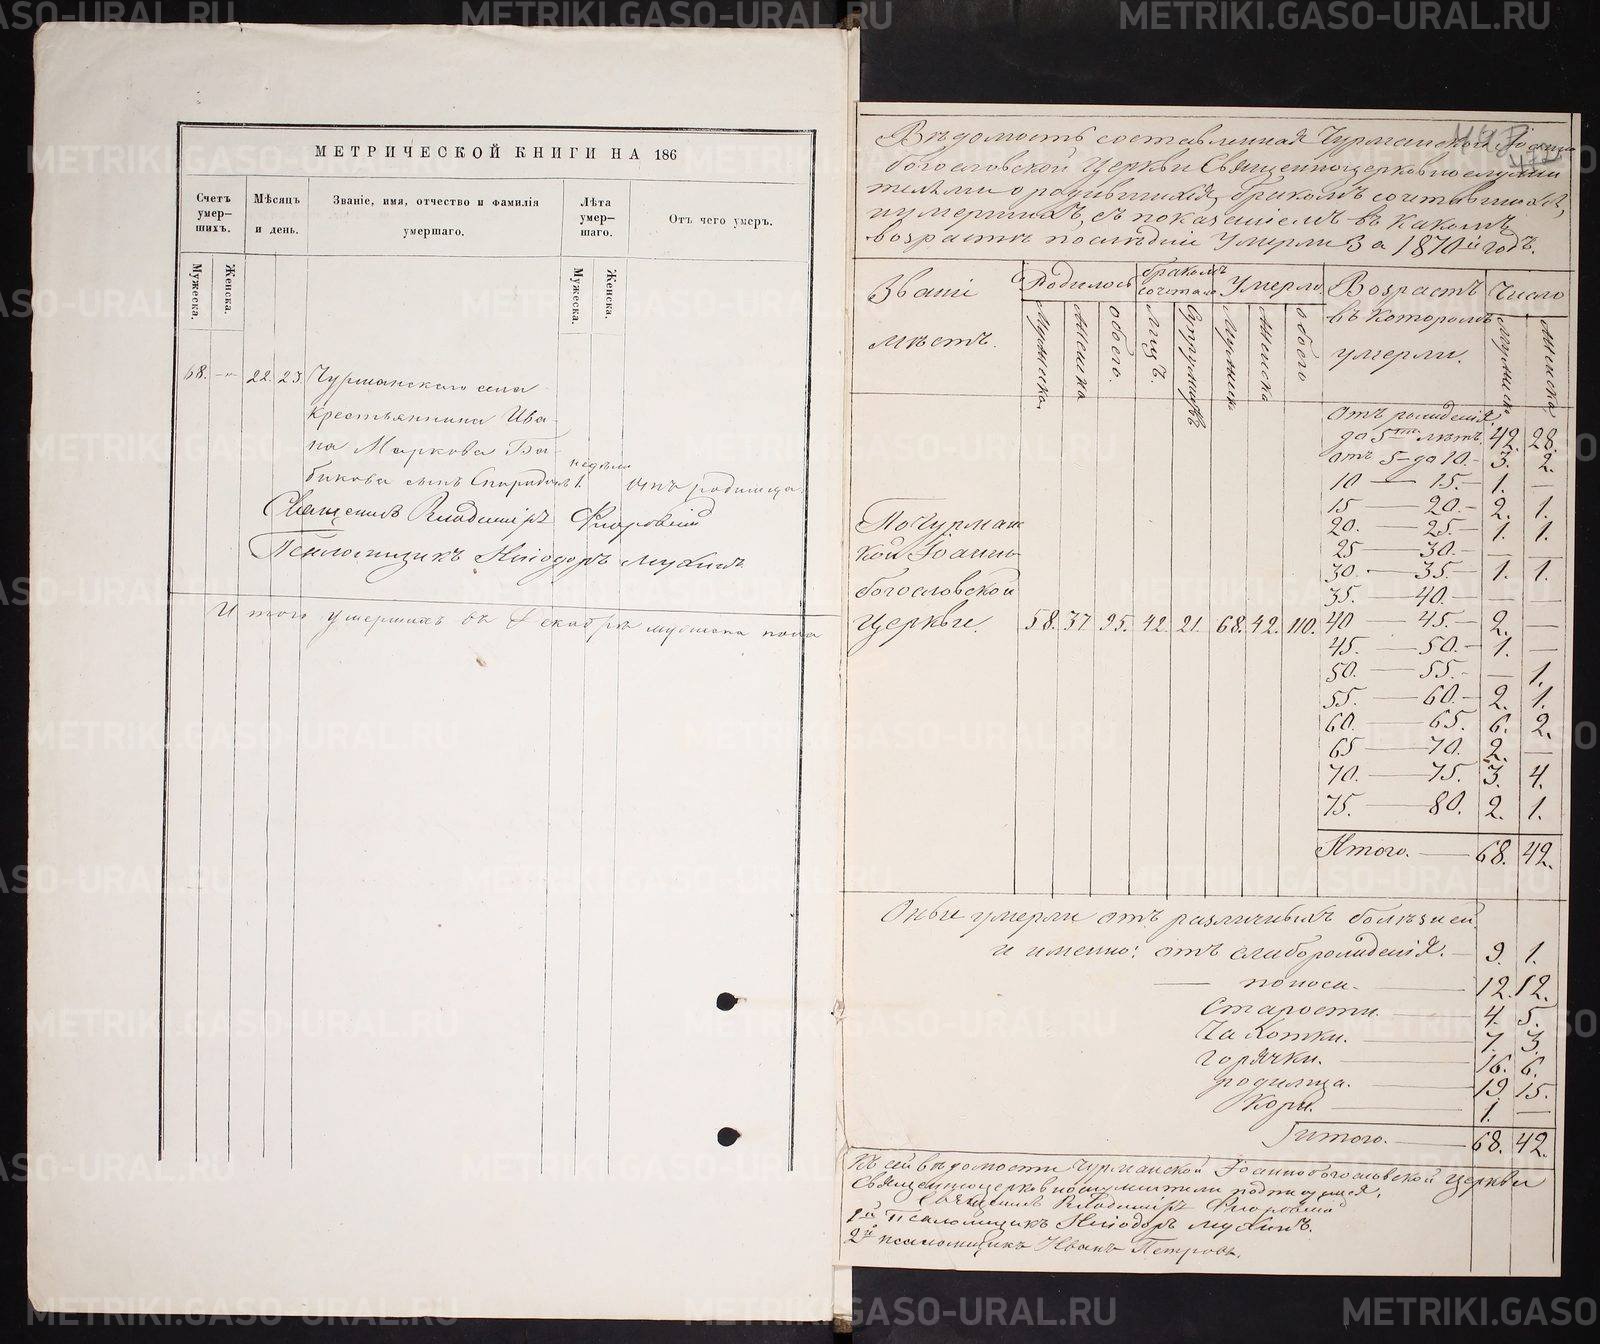 МЕТРИЧЕСКОЙ КНИГИ НА 186
Счетъ умер-шихъ.
Мѣсяцъ и день.
Званіе, имя, отчество и фамилія умершаго.
Лѣта умер-шаго.
Отъ чего умеръ.
Мужеска.
Женска.
Мужеска.
Женска.
68. -"- 22. 23. Чурманскаго села
крестьянина Ива-
на Маркова Ба-
недѣли
бикова сынъ Спиридонъ 1. отъ родимца.
Священникъ Владиміръ Флоровскій
Псаломщикъ Иліодоръ Мухинъ
Итого умершихъ въ Декабрѣ мужеска пола
Вѣдомость составленная Чурманской Іоанно
богословской Церкви Священноцерковнослужи
телями о родившихся, бракомъ сочетавшихся,
и умершихъ, съ показаніемъ въ какомъ
возрастѣ послѣдніе умерли за 1870й годъ.
Званіе мѣстъ.
Родилось
бракомъ сочетал.
Умерло.
Возрастъ въ которомъ умерли.
Число
Мужеска
Женска
обоего.
Лицъ.
Супружествъ
Мужеска
Женска
обоего
Мужеска
Женска
По Чурман
кой Іоанно-
богословской
Церкви. 58. 37. 95. 42. 21. 68. 42. 110.
Отъ рожденія
до 5ти лѣтъ. 42. 28.
отъ 5 — до 10. — 3. 2.
10 — 15. — 1. —
15 — 20. — 2. 1.
20. — 25. — 1. 1.
25 — 30. — — —
30. — 35. — 1. 1.
35. — 40. — — —
40 — 45. — 2. —
45. — 50. — 1. —
50. — 55. — — 1.
55. — 60. — 2. 1.
60. — 65. 6. 2.
65 — 70. 2. —
70. — 75. 3. 4.
75. — 80. 2. 1.
Итого. — 68. 42.
Оные умерли отъ различныхъ болѣзней
и именно: отъ слаборожденія. — 9. 1.
— поноса. — 12. 12.
Старости. — 4. 5.
Чахотки. — 7. 3.
горячки. — 16. 6.
родимца. — 19. 15.
Кори. — 1. —
Итого. — 68. 42.
Къ сей вѣдомости Чурманской Іоаннобогословской Церкви
Священноцерковнослужители подписуемся.
Священникъ Владиміръ Флоровскій
1й Псаломщикъ Иліодоръ Мухинъ.
2й псаломщикъ Иванъ Петровъ.
METRIKI.GASO-URAL.RU